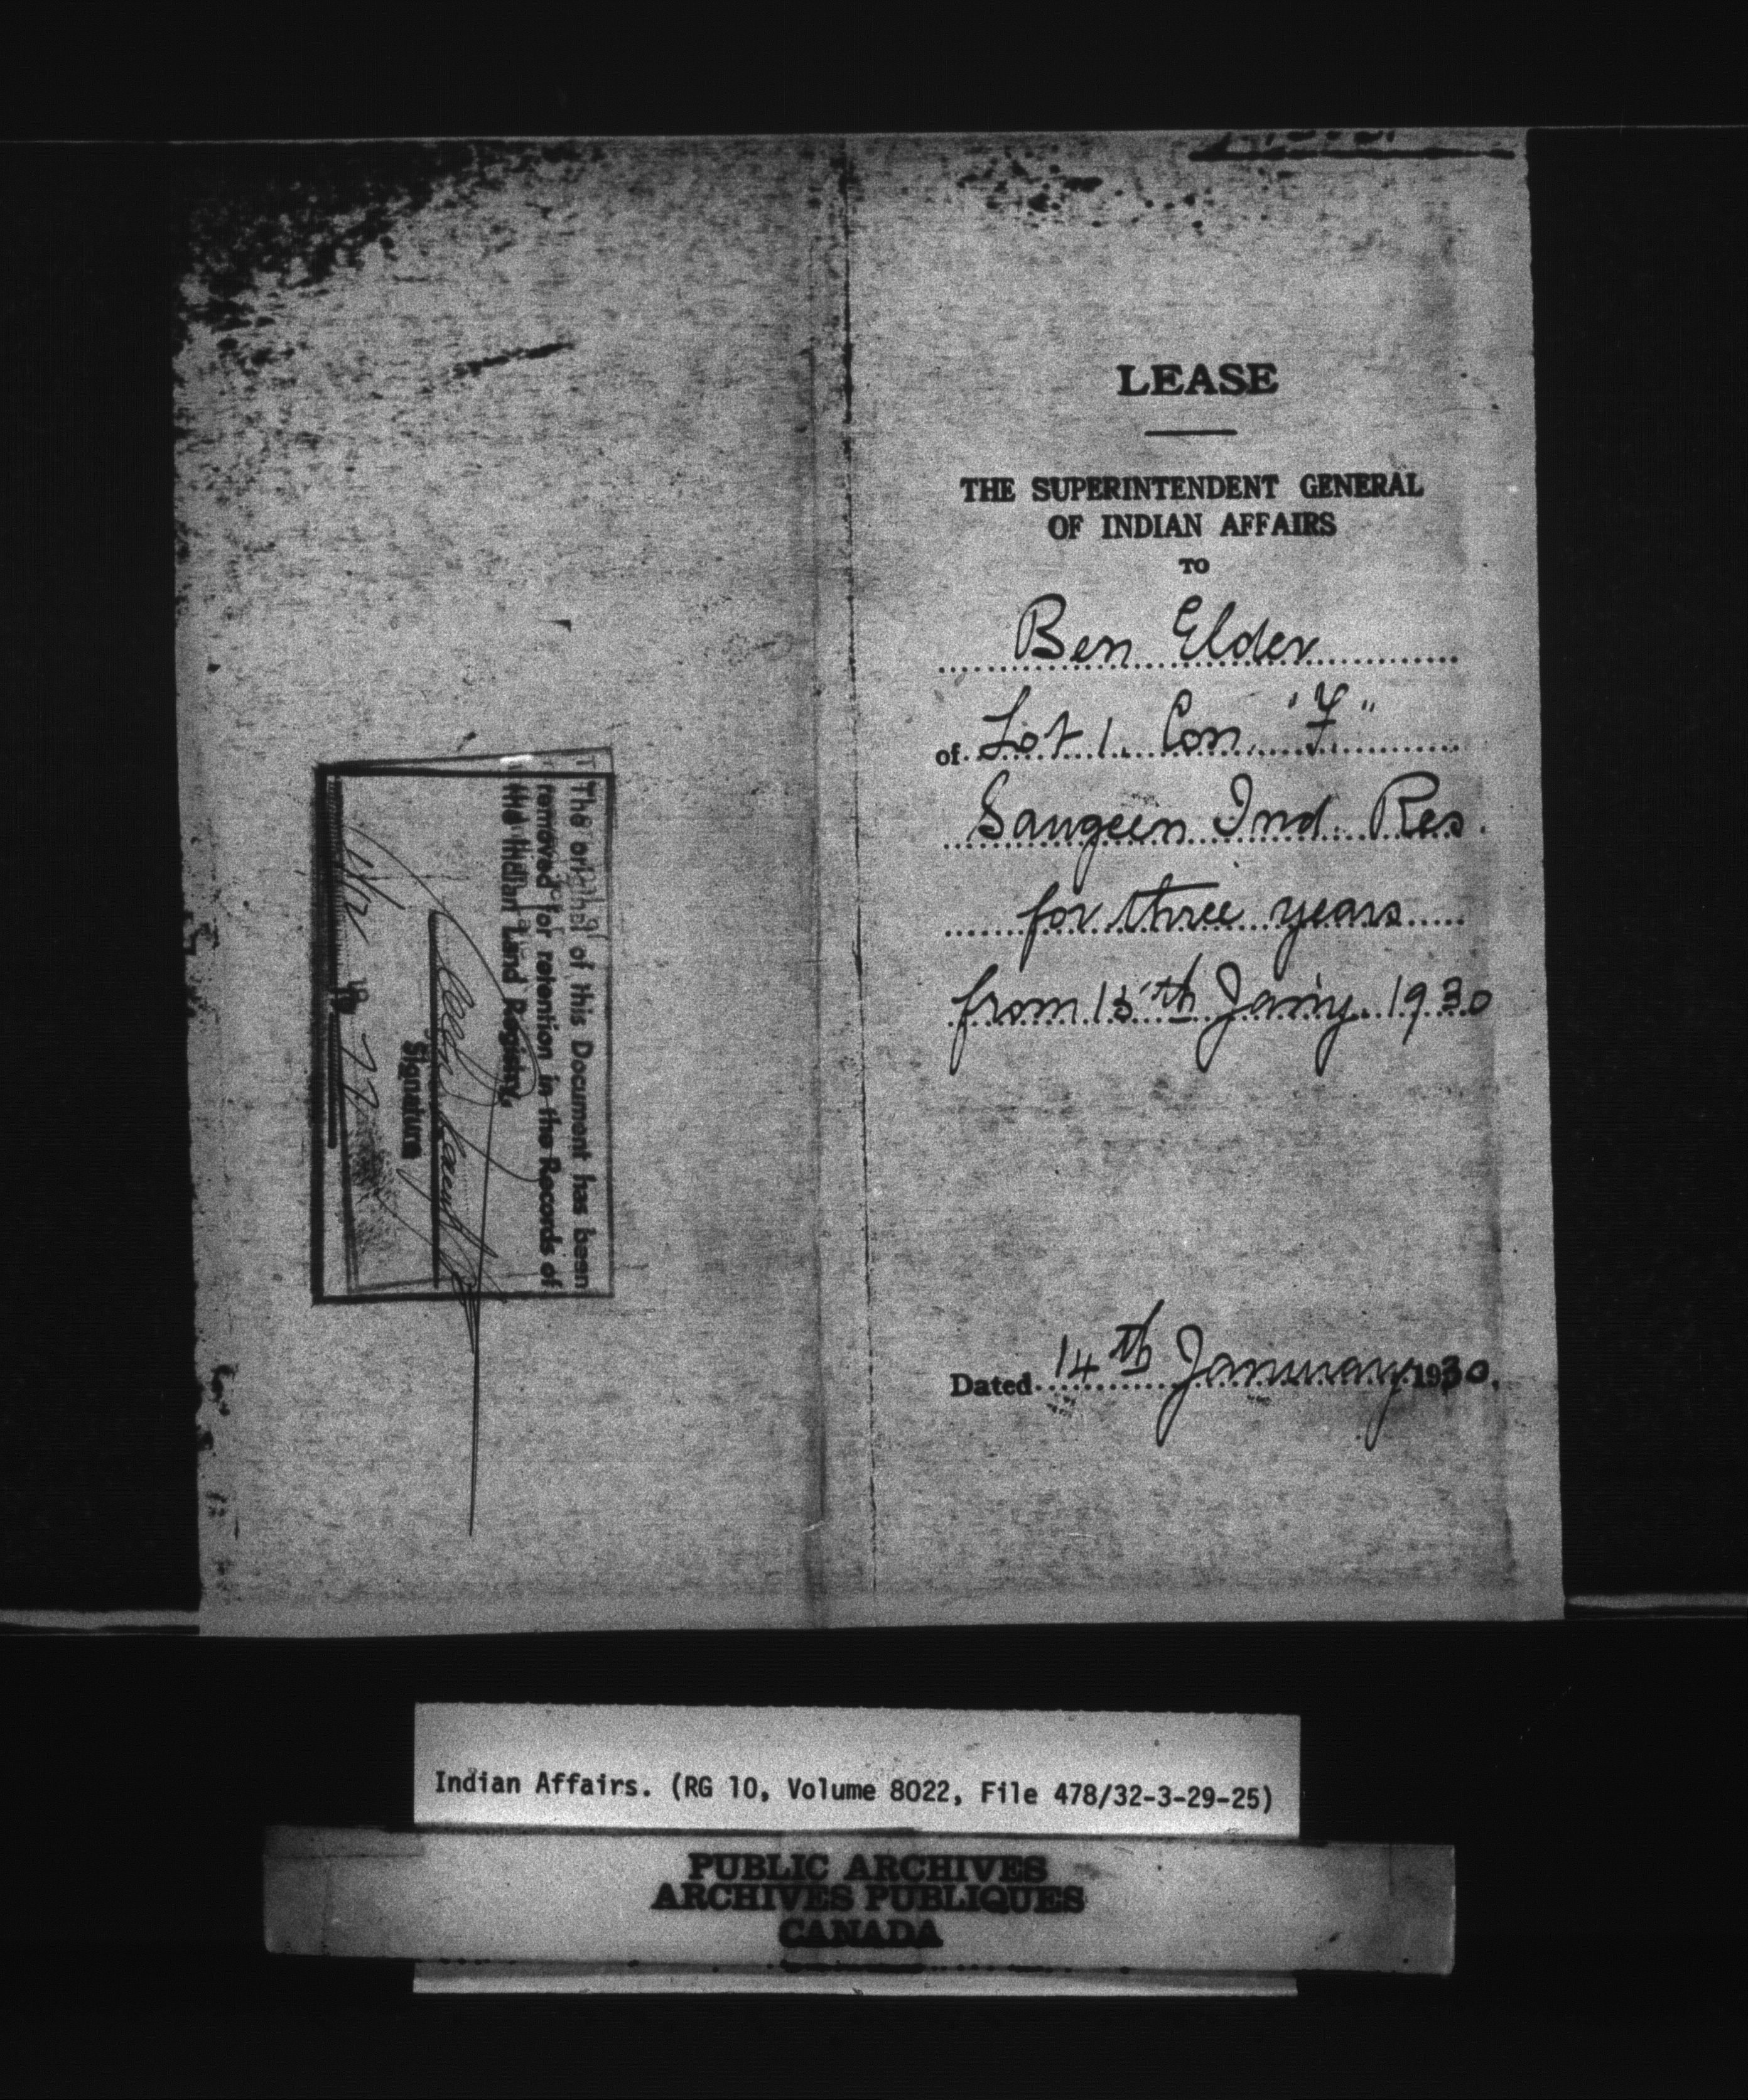 LEASE
THE SUPERINTENDENT GENERAL
OF INDIAN AFFAIRS
TO
Ben Elder
of Lot 1. Con. "F"
Saugeen Ind. Res.
for three years
from 15th Jan'y. 1930
Dated 14th January 1930.
The original of this Document has been
removed for retention in the Records of
the Indian Land Registry.
Signature
Indian Affairs. (RG 10, Volume 8022, File 478/32-3-29-25)
PUBLIC ARCHIVES
ARCHIVES PUBLIQUES
CANADA